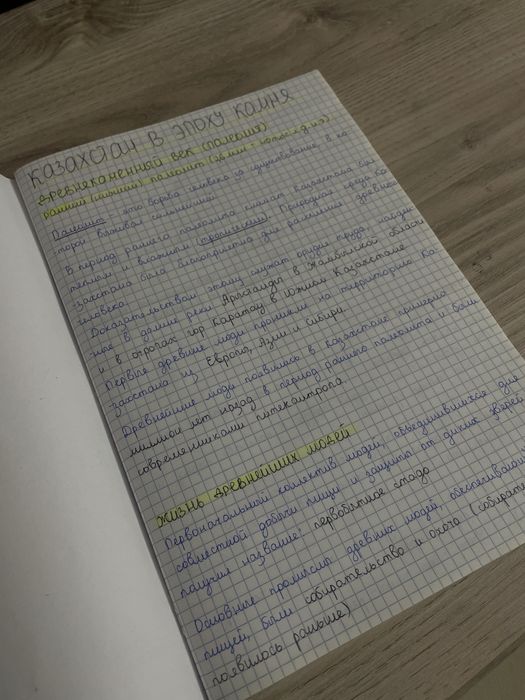 КАЗАХСТАН В ЭПОХУ КАМНЯ
ДРЕВНЕКАМЕННЫЙ ВЕК (ПАЛЕОЛИТ)
РАННИЙ (нижний) палеолит
Палеолит - это борьба человека за существование, в ко-
торой выживал сильнейший
В период раннего палеолита климат Казахстана был
тёплым и влажным (тропическим). Природная среда Ка-
захстана была благоприятна для расселения древнего
человека.
Доказательствам этому служат орудия труда, найден-
ные в долине реки Арыстанды в Жамбылской области
и в отрогах гор Каратау в Южном Казахстане.
Первые древние люди проникли на территорию Ка-
захстана из Европы, Азии и Сибири.
Древнейшие люди появились в Казахстане примерно
миллион лет назад в период раннего палеолита и были
современниками питекантропа.
ЖИЗНЬ ДРЕВНЕЙШИХ ЛЮДЕЙ
Первоначальный коллектив людей, объединившихся для
совместной добычи пищи и защиты от диких зверей
получил название: первобытное стадо
Основные промыслы древних людей, обеспечивающи
пищей, были собирательство и охота (собирате
появилось раньше)